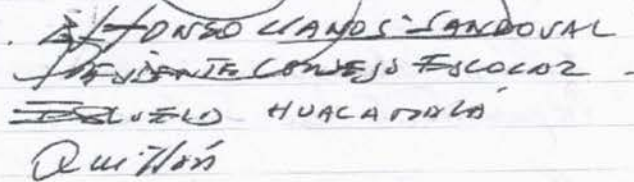 Alfonso Llanos Sandoval
Presidente Consejo Escolar -
Escuela Huacamalá
Quillón